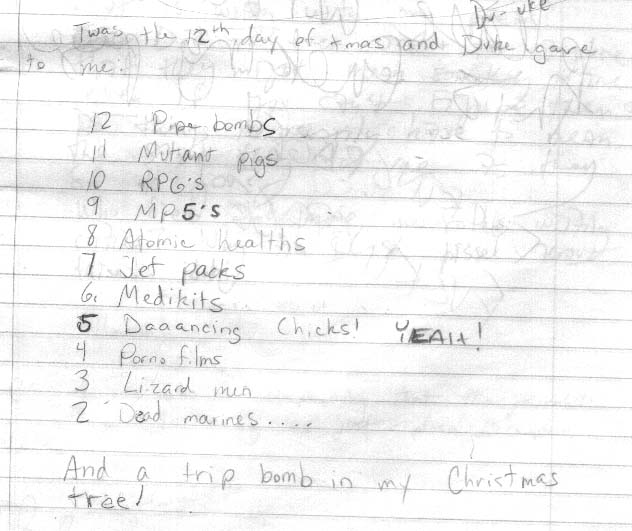 Du-uke
Twas the 12th day of xmas and Duke gave
to me:
12 Pipe bombs
11 Mutant pigs
10 RPG's
9 MP5's
8 Atomic healths
7 Jet packs
6. Medikits
5 Daaancing Chicks! YEAH!
4 Porno films
3 Lizard men
2 Dead marines....
And a trip bomb in my Christmas
tree!